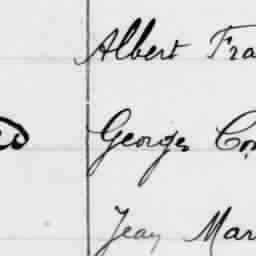 Albert Fra
Georges Co
Jean Mar